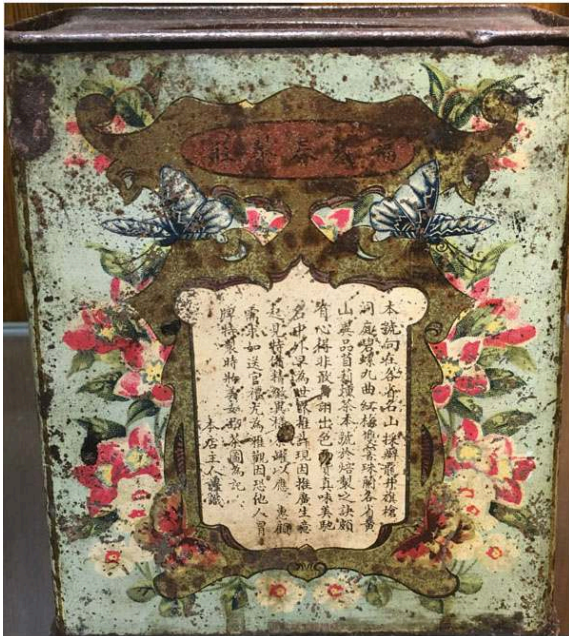 泰茶莊
本號向在各奇名山採辦龍井旗槍
洞庭碧螺九曲紅梅雲霧珠蘭各省黃
山異品茶本號於焙製之訣頗
有心得非敢詡出色真味美馳
名中外早為世推許現因推廣生意
起見特備精緻異樣罐以應 惠顧
需求如送官禮尤為雅觀因恐他人冒
牌特製時物茶圖為記
本店主人謹識